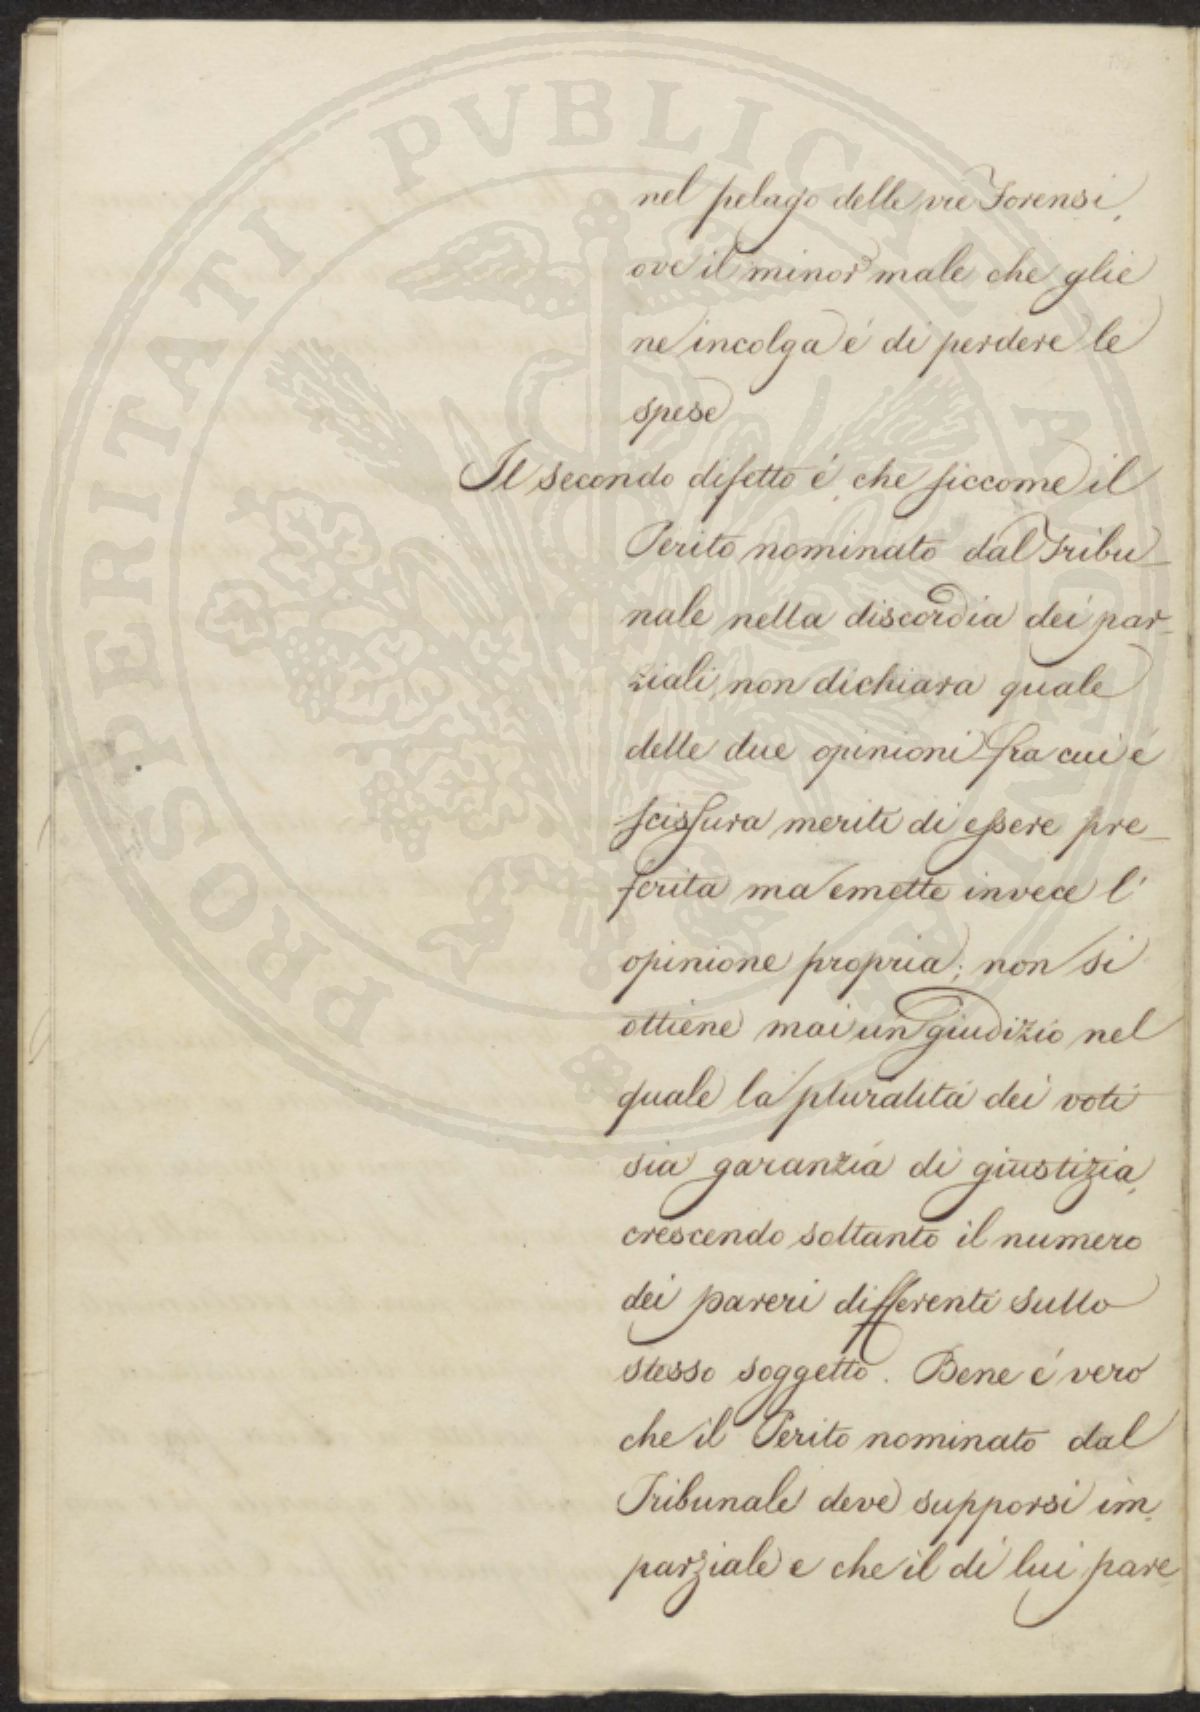 nel pelago delle vie Forensi,
ove il minor male che glie
ne incolga é di perdere le
spese
Il secondo difetto é, che siccome il
Perito nominato dal Tribu_
nale nella discordia dei par_
ziali, non dichiara quale
delle due opinioni fra cui é
scissura meriti di essere pre_
ferita ma emette invece l'
opinione propria; non si
ottiene mai un giudizio nel
quale la pluralitá dei voti
sia garanzia di giustizia,
crescendo soltanto il numero
dei pareri differenti sullo
stesso soggetto. Bene é vero
che il Perito nominato dal
Tribunale deve supporsi im_
parziale e che il di lui pare_
PROSPERITATI PVBLICAE AVGENDAE